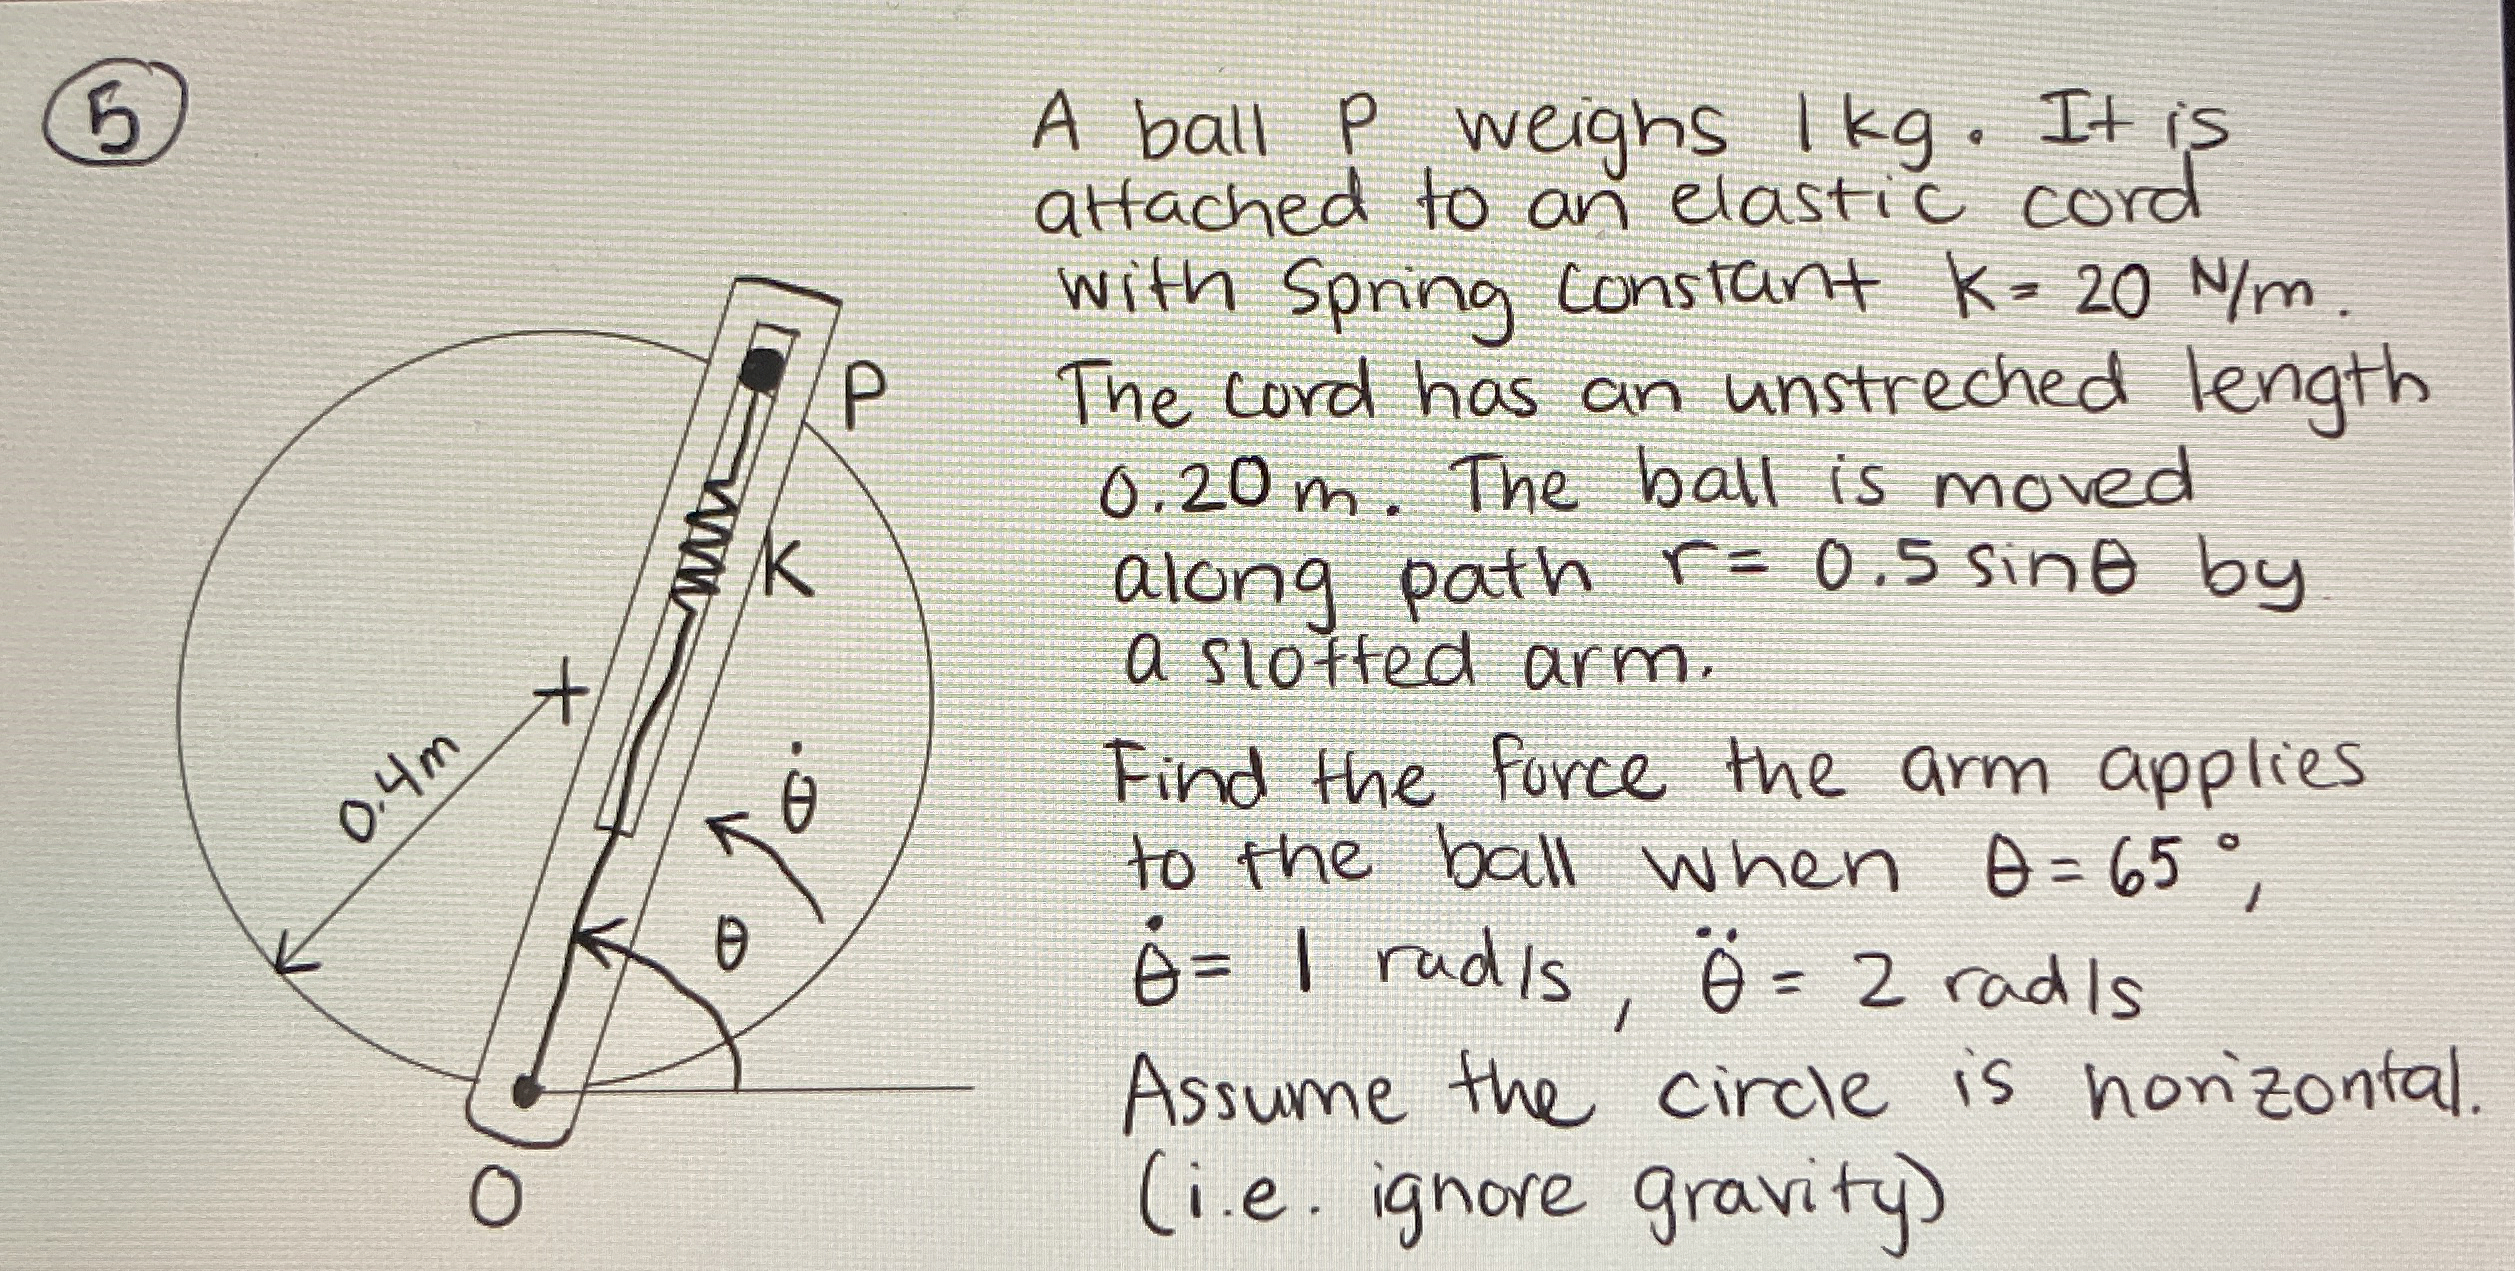 5
A ball P weighs 1 kg. It is
attached to an elastic cord
with Spring constant K = 20 N/m.
The cord has an unstreched length
0.20 m. The ball is moved
along path r = 0.5 sinθ by
a slotted arm.
Find the force the arm applies
to the ball when θ = 65°,
θ̇ = 1 rad/s, θ̈ = 2 rad/s
Assume the circle is horizontal.
(i.e. ignore gravity)
P
K
0.4m
θ̇
θ
O